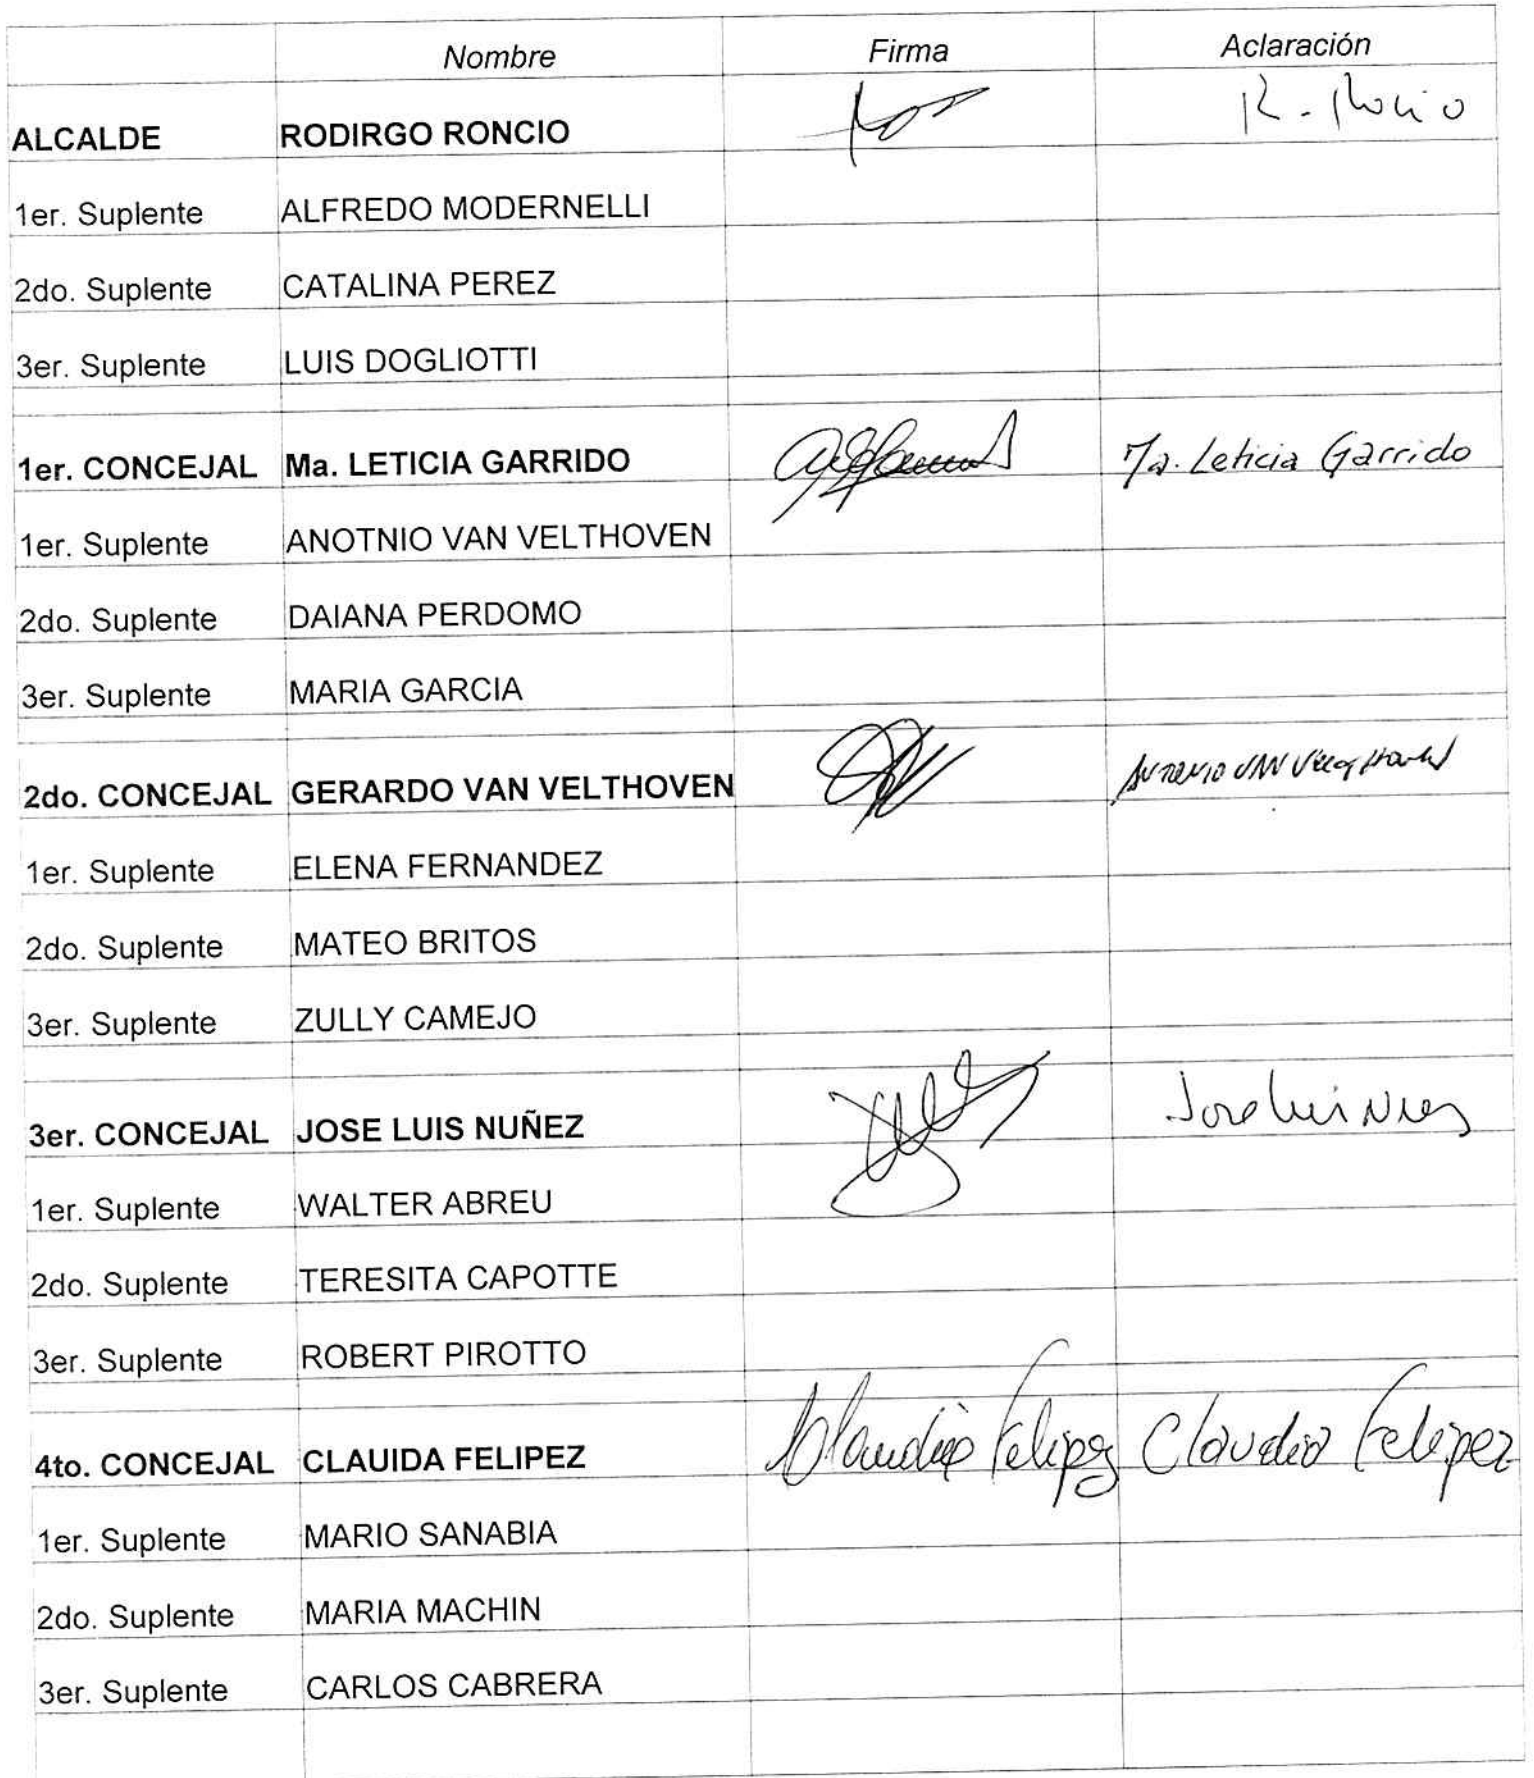 Nombre Firma Aclaración
ALCALDE RODIRGO RONCIO R. Roncio
1er. Suplente ALFREDO MODERNELLI
2do. Suplente CATALINA PEREZ
3er. Suplente LUIS DOGLIOTTI
1er. CONCEJAL Ma. LETICIA GARRIDO Ma. Leticia Garrido
1er. Suplente ANOTNIO VAN VELTHOVEN
2do. Suplente DAIANA PERDOMO
3er. Suplente MARIA GARCIA
2do. CONCEJAL GERARDO VAN VELTHOVEN ANTONIO VAN
1er. Suplente ELENA FERNANDEZ
2do. Suplente MATEO BRITOS
3er. Suplente ZULLY CAMEJO
3er. CONCEJAL JOSE LUIS NUÑEZ Jose Luis
1er. Suplente WALTER ABREU
2do. Suplente TERESITA CAPOTTE
3er. Suplente ROBERT PIROTTO
4to. CONCEJAL CLAUIDA FELIPEZ Claudia Felipez Claudia Felipez
1er. Suplente MARIO SANABIA
2do. Suplente MARIA MACHIN
3er. Suplente CARLOS CABRERA